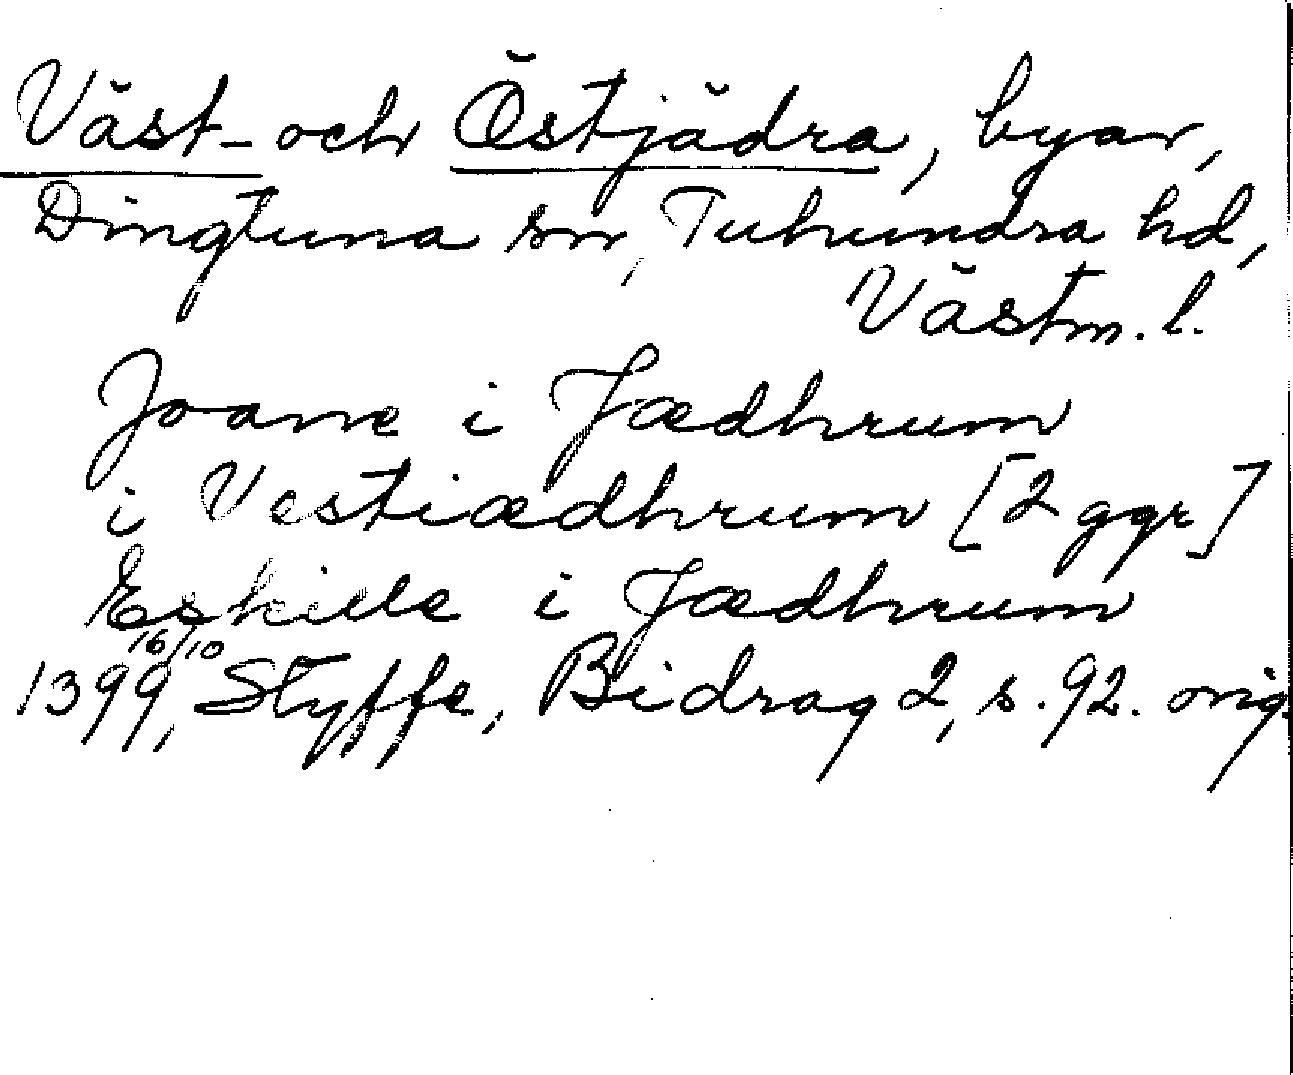 Väst- och Östjädra, byar,
Dingtuna sn, Tuhundra hd,
Västm. l.
Joane i Jædhrum
i Vestiædhrum [2 ggr]
Eskille i Jædhrum
1399 16/10, Styffe, Bidrag 2, s. 92. orig.